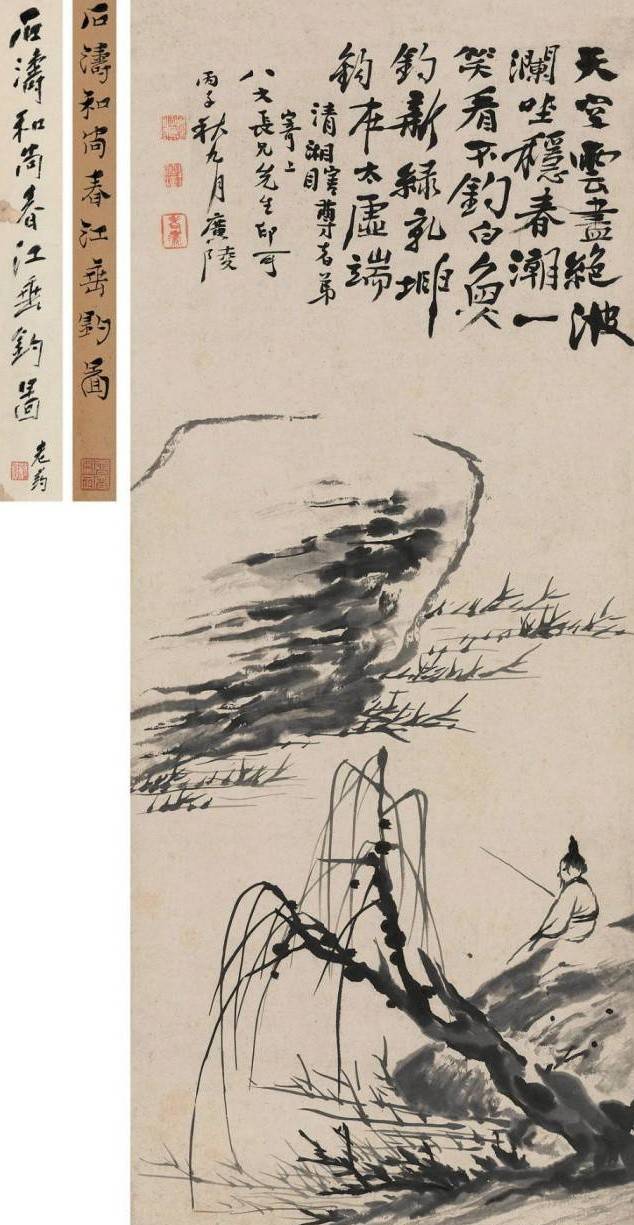 天空雲盡絕波
瀾坐穩春潮一
笑看不釣白魚
釣新綠乳坤
鈎在太虛端
清湘瞎尊者弟
寄上
八大長兄先生印可
丙子秋九月廣陵
石濤和尚春江垂釣圖
石濤和尚春江垂釣圖